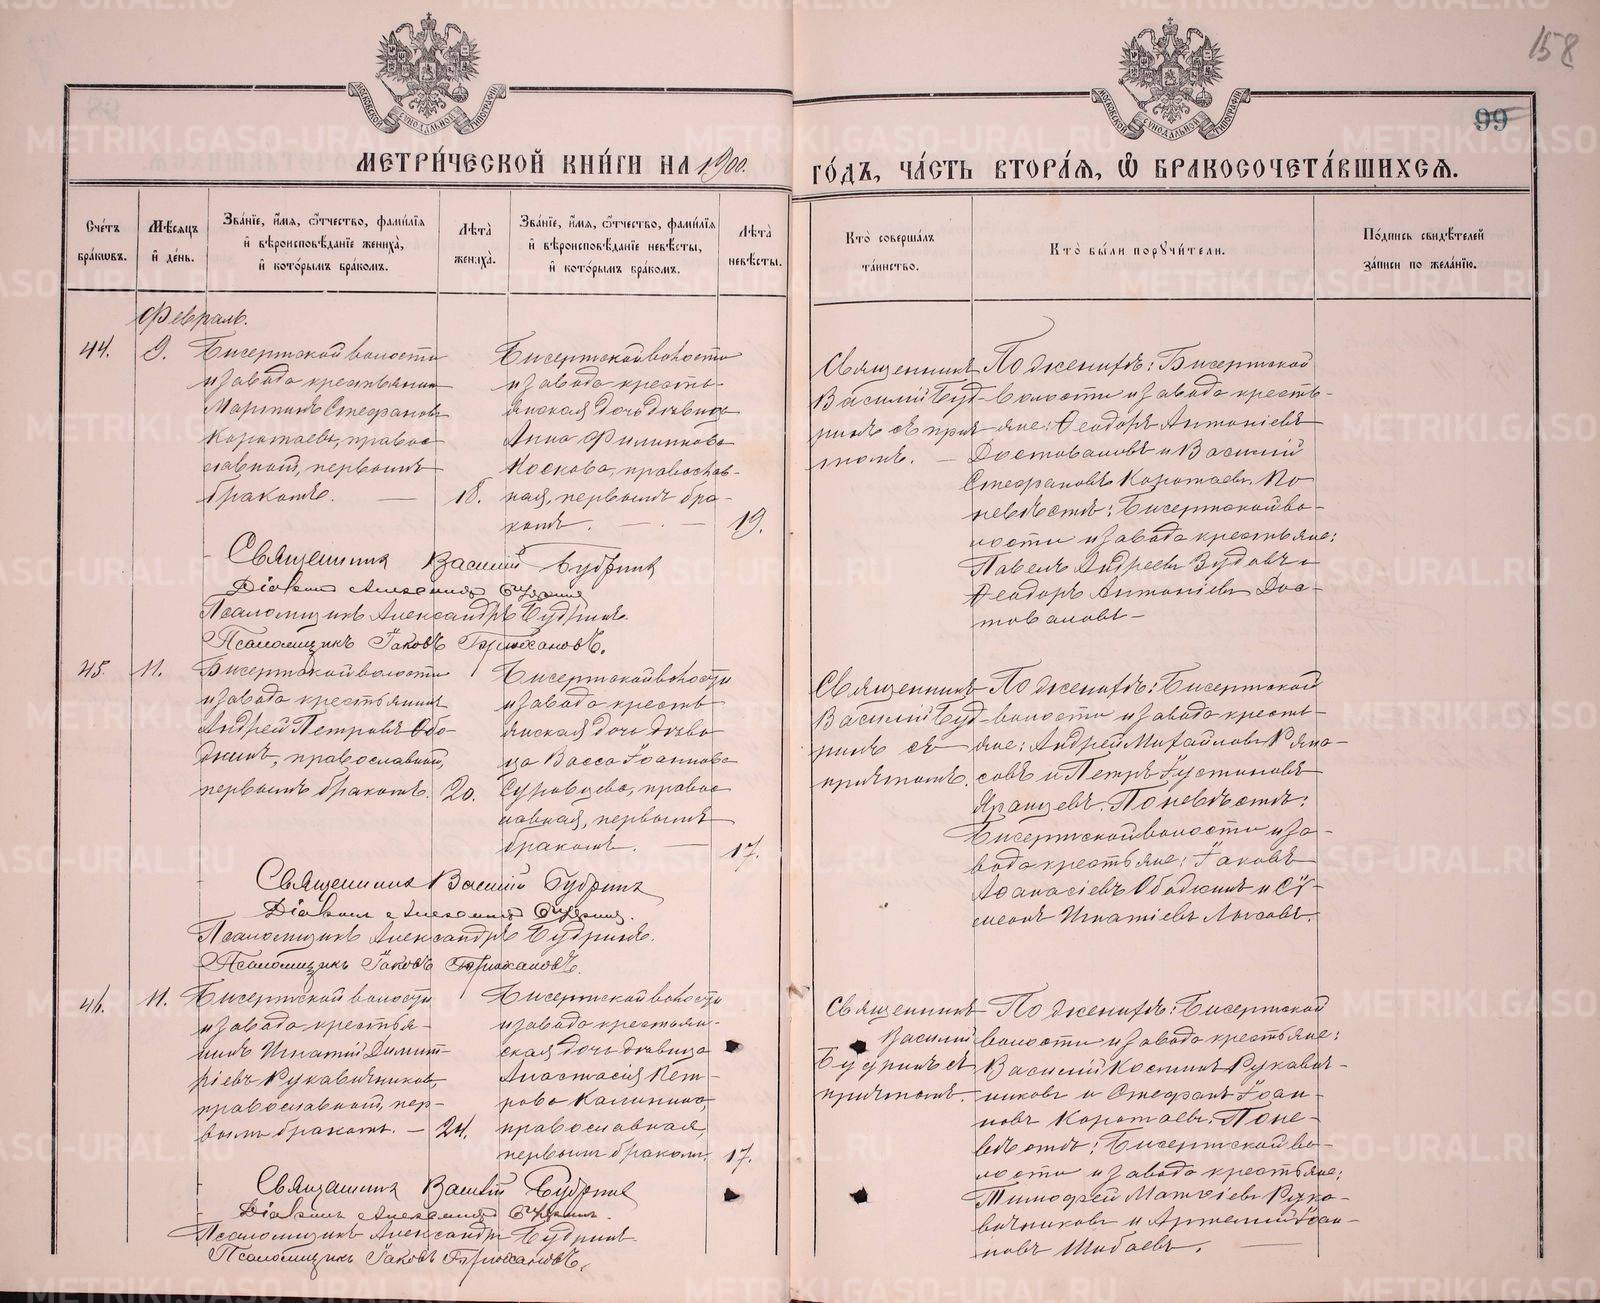 158
99
МЕТРИ́ЧЕСКОЙ КНИ́ГИ НА 1900. ГО́ДЪ, ЧА́СТЬ ВТОРА́Я, Ѡ҆ БРАКОСОЧЕТА́ВШИХСЯ.
Сче́тъ бра́кѡвъ.
Мѣ́сяцъ и҆ де́нь.
Зва́нїе, и҆́мя, ѻ҆́тчество, фами́лїя и҆ вѣроисповѣ́данїе жениха̀, и҆ кото́рымъ бра́комъ.
Лѣ́та жениха̀.
Зва́нїе, и҆́мя, ѻ҆́тчество, фами́лїя и҆ вѣроисповѣ́данїе невѣ́сты, и҆ кото́рымъ бра́комъ.
Лѣ́та невѣ́сты.
Кто̀ соверша́лъ та́инство.
Кто̀ бы́ли поручи́тели.
По́дпись свидѣ́телей за́писи по жела́нїю.
Февраль.
44.
9.
Бисертской волости
и завода крестьянин
Мартинъ Стефановъ
Коротаевъ, правос
лавный, первымъ
бракомъ.
18.
Бисертской волости
и завода кресть-
янская дочь девица
Анна Филиппова
Коскова, православ-
ная, первымъ бра-
комъ.
19.
Священникъ
Василій Буд-
ринъ съ прич
томъ.
По женихѣ: Бисертской
волости и завода кресть-
яне: Ѳеодоръ Антоніевъ
Достоваловъ и Василій
Стефановъ Коротаевъ. По
невѣстѣ: Бисертской во-
лости и завода крестьяне:
Павелъ Андреевъ Зудовъ и
Ѳеодоръ Антоніевъ Дос-
товаловъ
Священникъ Василій Будринъ
Діаконъ Александръ
Псаломщикъ Александръ Будринъ.
Псаломщикъ Іаковъ Брюхановъ.
45.
11.
Бисертской волости
и завода крестьянинъ
Андрей Петровъ Обо-
жинъ, православный,
первымъ бракомъ.
20.
Бисертской волости
и завода кресть
янская дочь деви
ца Васса Іоаннова
Суровцева, правос
лавная, первымъ
бракомъ.
17.
Священникъ
Василій Буд-
ринъ съ
причтомъ.
По женихѣ: Бисертской
волости и завода кресть-
яне: Андрей Михайловъ Ряпа-
совъ и Петръ Іустиновъ
Яранцевъ. По невѣстѣ:
Бисертской волости и за-
вода крестьяне: Іаковъ
Аѳанасіевъ Ободкинъ и Сі-
меонъ Игнатіевъ
Священникъ Василій Будринъ
Діаконъ Александръ
Псаломщикъ Александръ Будринъ.
Псаломщикъ Іаковъ Брюхановъ.
46.
11.
Бисертской волости
и завода крестья-
нинъ Игнатій Димит-
ріевъ Рукавичниковъ,
православный, пер-
вымъ бракомъ.
24.
Бисертской волости
и завода крестьян-
ская дочь девица
Анастасія Пет-
рова Калинина,
православная,
первымъ бракомъ.
17.
Священникъ
Василій
Будринъ съ
причтомъ.
По женихѣ: Бисертской
волости и завода крестьяне:
Василій Костинъ Рукавич-
никовъ и Стефанъ Іоан-
новъ Коротаевъ. По не-
вѣстѣ: Бисертской во-
лости и завода крестьяне:
Тимофей Матѳіевъ Рука-
вичниковъ и Артемій Іоан-
новъ Шибаевъ.
Священникъ Василій Будринъ
Діаконъ Александръ
Псаломщикъ Александръ Будринъ.
Псаломщикъ Іаковъ Брюхановъ.
METRIKI.GASO-URAL.RU